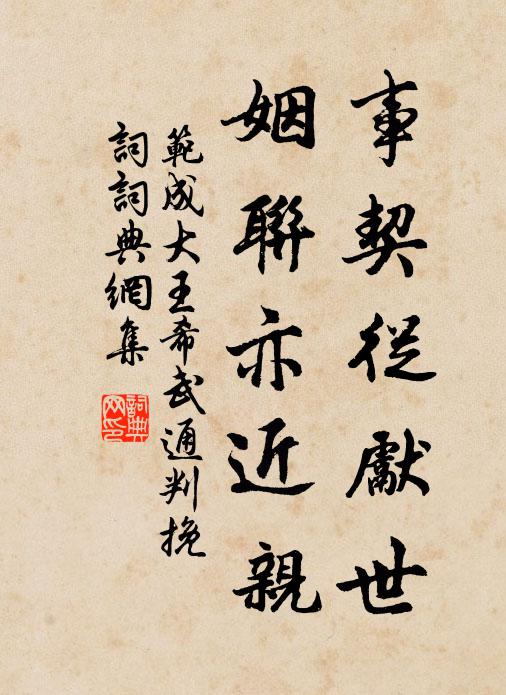 事契從獻世
姻聯亦近親
範成大王希武通判挽
詞詞典網集
詞典網印